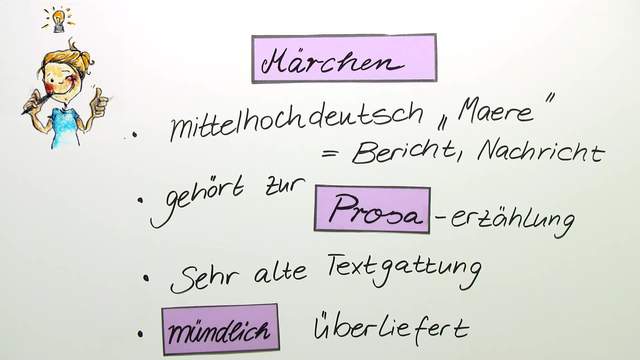 Märchen
• mittelhochdeutsch „Maere"
= Bericht, Nachricht
• gehört zur Prosa-erzählung
• Sehr alte Textgattung
• mündlich überliefert